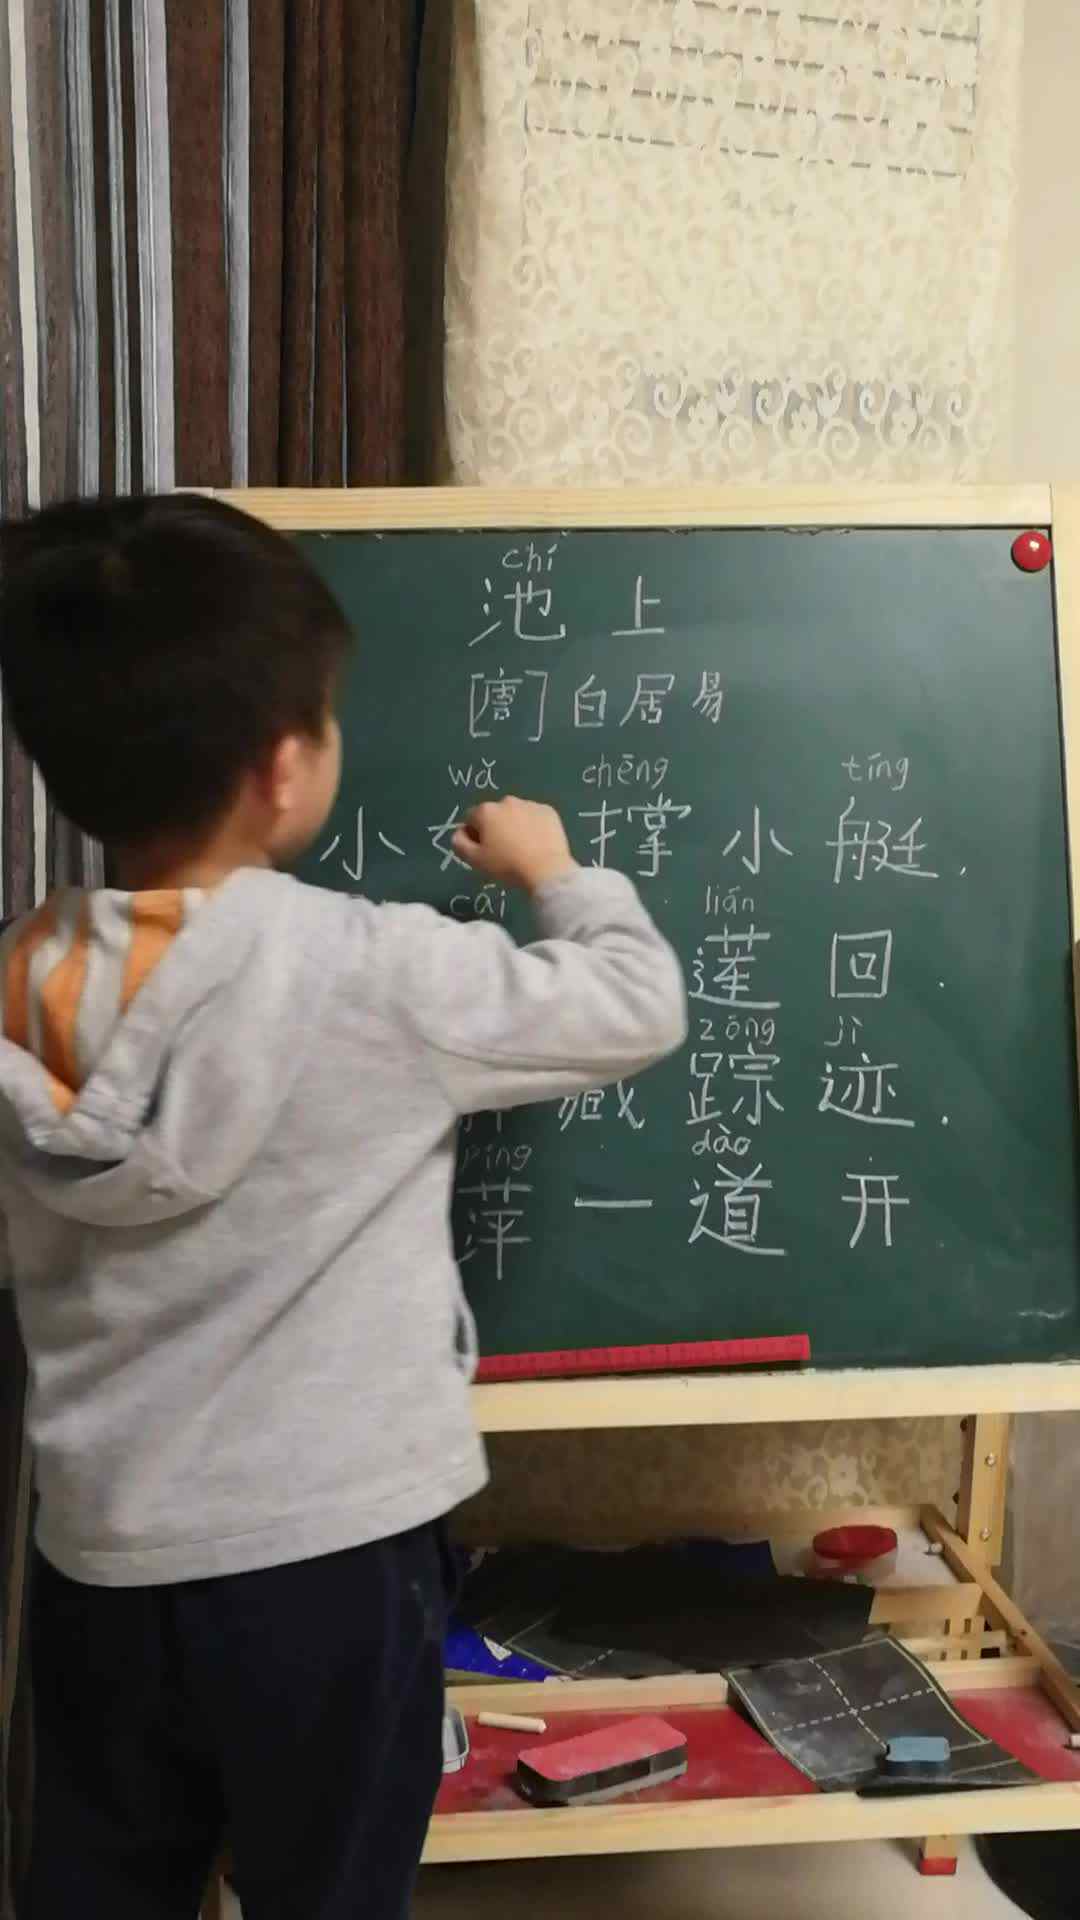 chí
池 上
[唐] 白居易
wǎ chēng tíng
小 撑 小 艇 .
cǎi lián
莲 回 .
zōng jì
藏 踪 迹 .
píng dào
萍 一 道 开